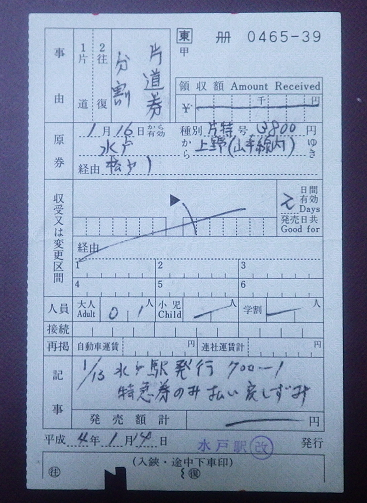 東 冊 0465-39
甲
事由
1片道
2往復
片道券
分割
領収額 Amount Received
¥ 千 円
原券
1月16日から有効 種別 片特 号 3800円
水戸 から 上野(山手線内) ゆき
経由 松戸
収受又は変更区間
2 日間有効 Days
発売日共 Good for
経由
1 2 3
4 5 6
人員 大人 Adult 0 1人 小児 Child 人 学割 人
接続
再掲 自動車運賃 円 連社運賃計 円
記事
1/13 水戸駅発行 700-1
特急券のみ払い戻しずみ
発売額計 円
平成 4年1月14日 水戸駅 改 発行
(入鋏・途中下車印)